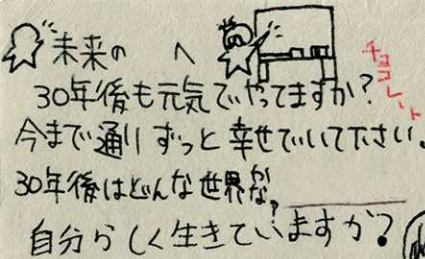 未来の へ
チョコレート
30年後も元気でやってますか?
今まで通りずっと幸せでいて下さい。
30年後はどんな世界かな。
自分らしく生きていますか?